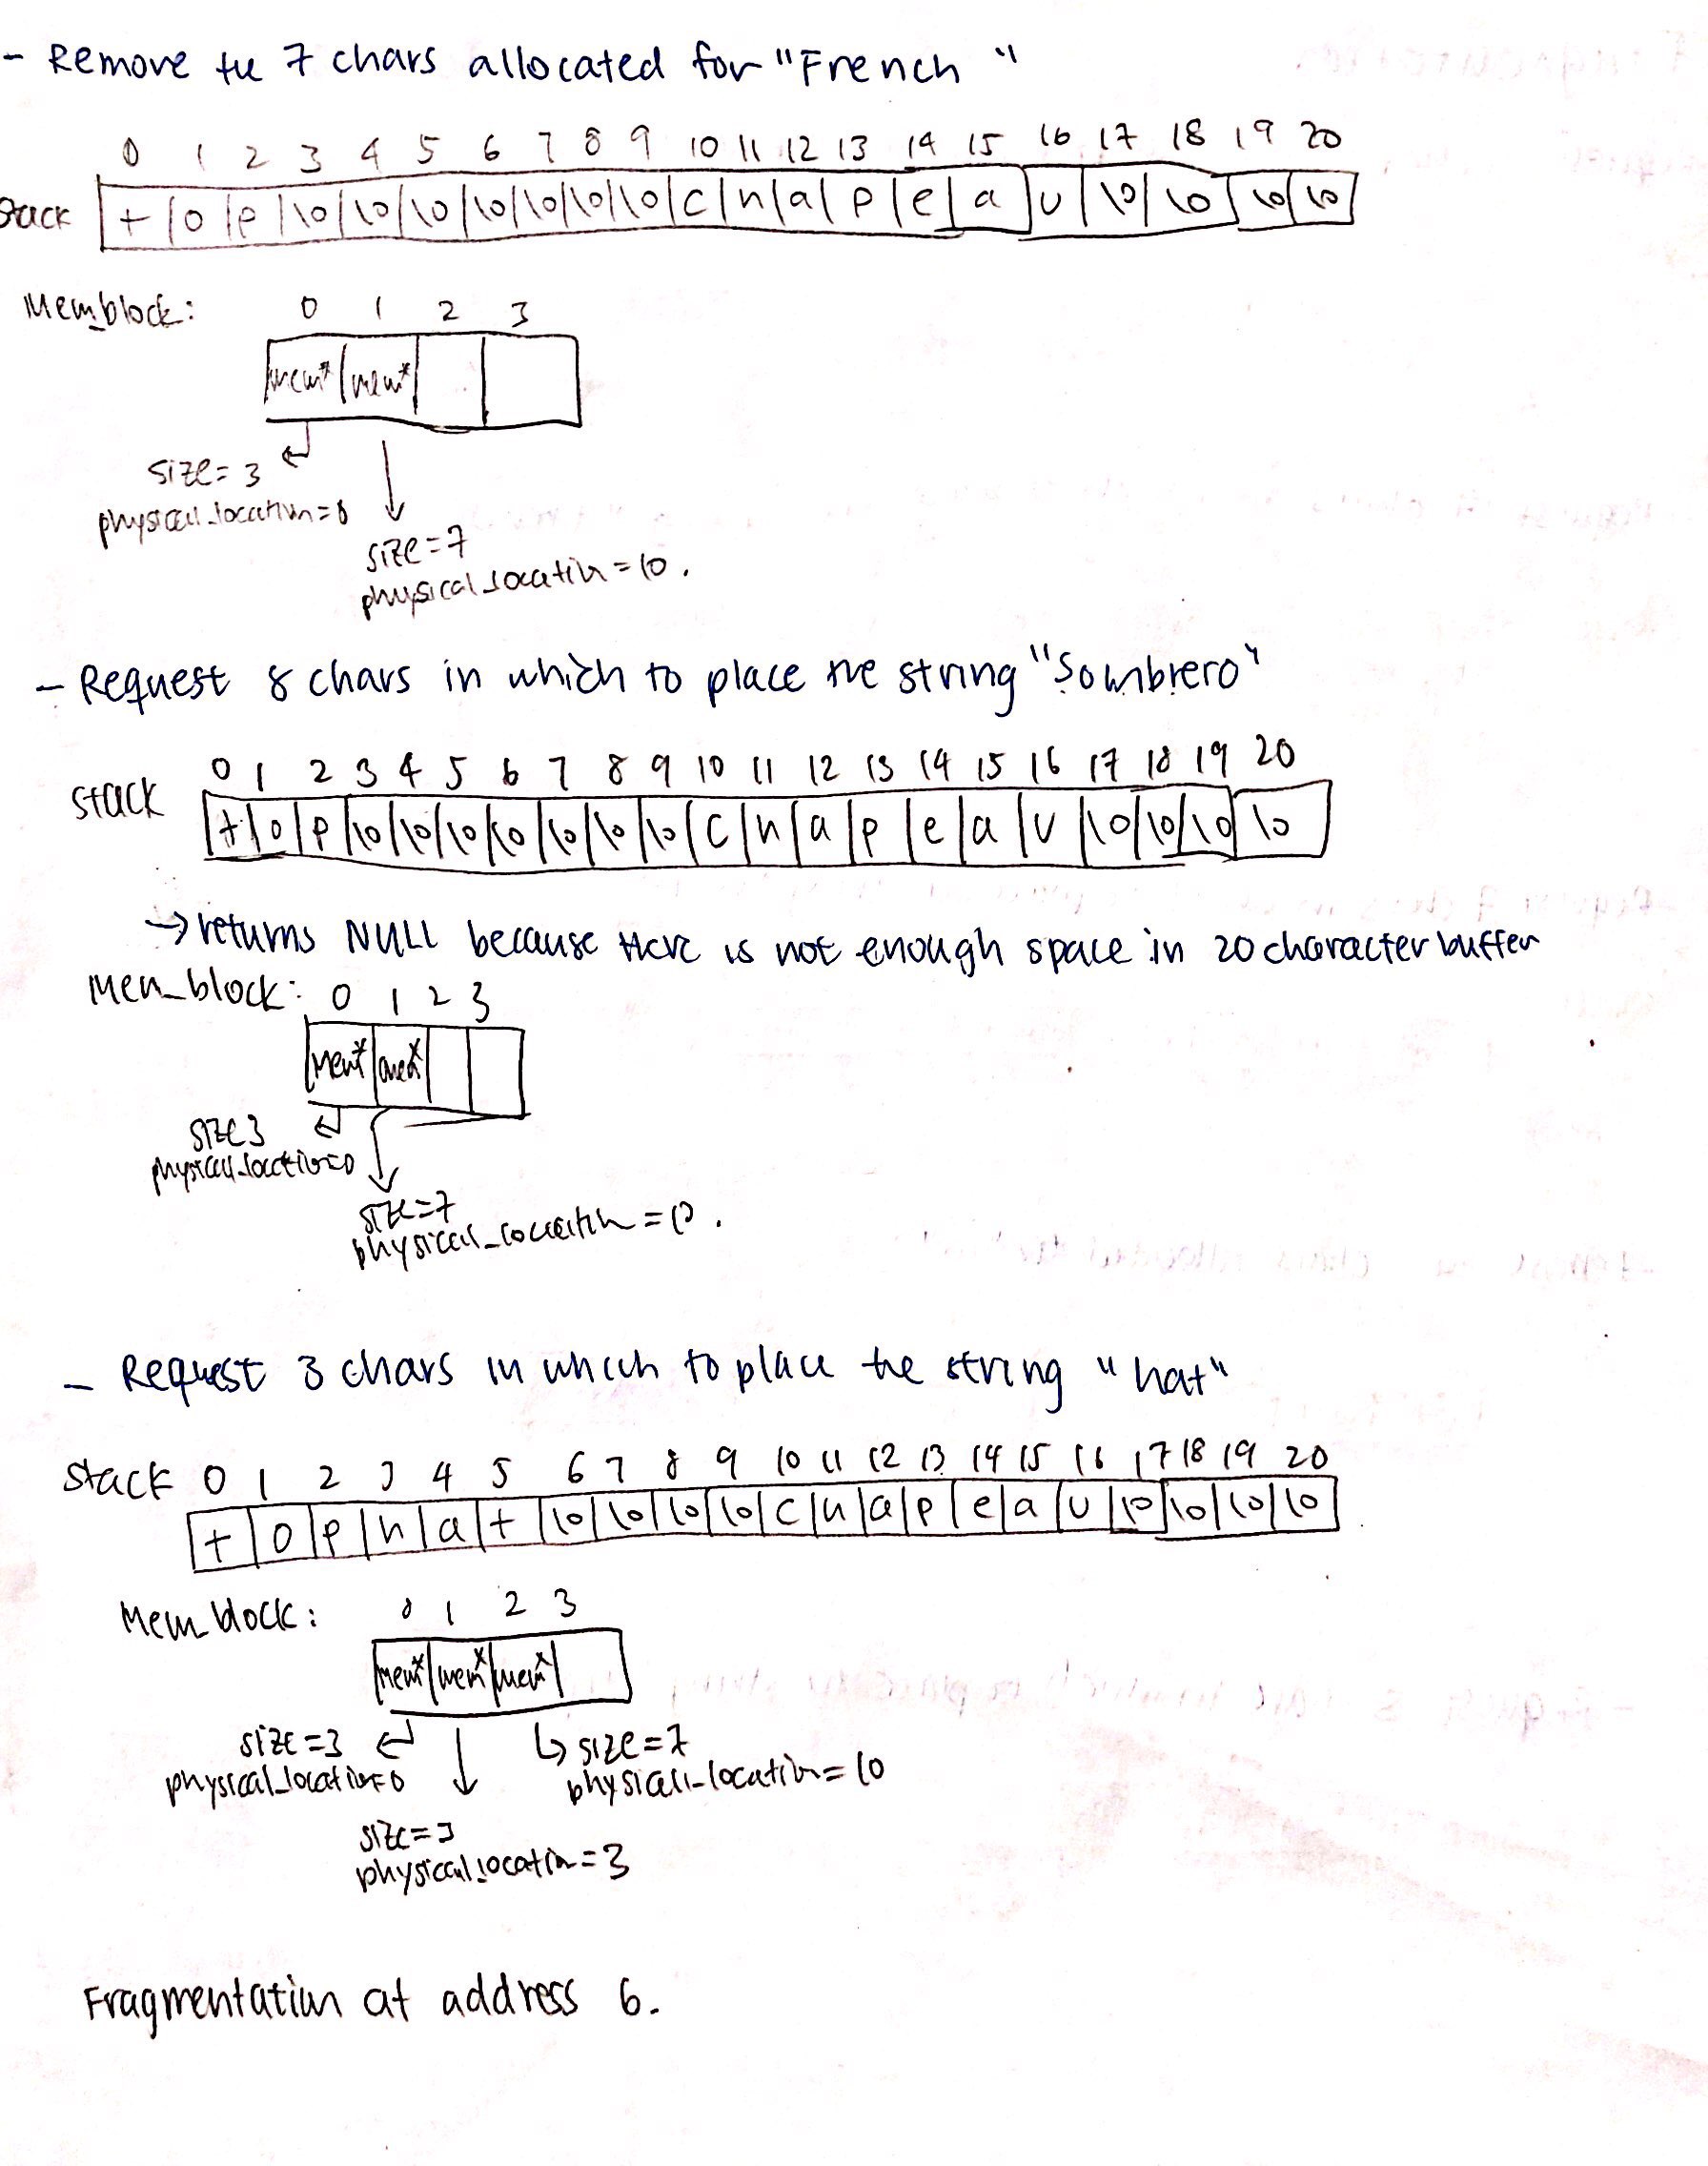 - Remove the 7 chars allocated for "French "
0 1 2 3 4 5 6 7 8 9 10 11 12 13 14 15 16 17 18 19 20
Stack t o p \0 \0 \0 \0 \0 \0 \0 c h a p e a u \0 \0 \0 \0
Mem_block: 0 1 2 3
mem* mem*
size=3
physical_location=0
size=7
physical_location=10.
- Request 8 chars in which to place the string "Sombrero"
0 1 2 3 4 5 6 7 8 9 10 11 12 13 14 15 16 17 18 19 20
stack t o p \0 \0 \0 \0 \0 \0 \0 c h a p e a u \0 \0 \0 \0
→ returns NULL because there is not enough space in 20 character buffer
Mem_block: 0 1 2 3
mem* mem*
size 3
physical_location=0
size=7
physical_location=10.
- Request 3 chars in which to place the string "hat"
stack 0 1 2 3 4 5 6 7 8 9 10 11 12 13 14 15 16 17 18 19 20
t o p h a t \0 \0 \0 \0 c h a p e a u \0 \0 \0 \0
Mem_block: 0 1 2 3
mem* mem* mem*
size=3 ↳ size=7
physical_location=0 physical_location=10
size=3
physical_location=3
Fragmentation at address 6.